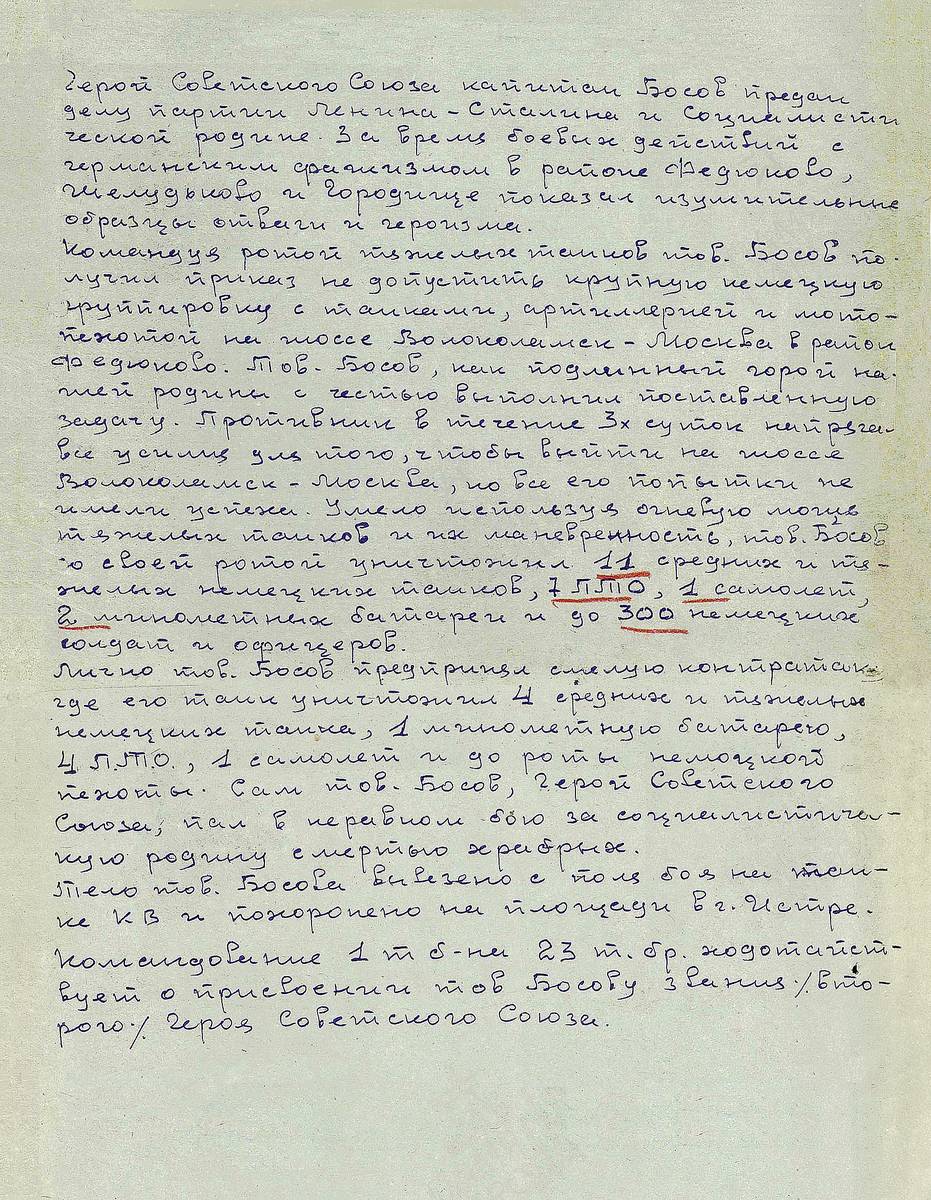 Герой Советского Союза капитан Босов предан
делу партии Ленина-Сталина и Социалисти
ческой родине. За время боевых действий с
германским фашизмом в районе Федюково,
Шелудьково и Городище показал изумительные
образцы отваги и героизма.
Командуя ротой тяжелых танков тов. Босов по-
лучил приказ не допустить крупную немецкую
группировку с танками, артиллерией и мото-
пехотой на шоссе Волоколамск-Москва в район
Федюково. Тов. Босов, как подлинный герой на-
шей родины с честью выполнил поставленную
задачу. Противник в течение 3х суток напрягал
все усилия для того, чтобы выйти на шоссе
Волоколамск-Москва, но все его попытки не
имели успеха. Умело используя огневую мощь
тяжелых танков и их маневренность, тов. Босов
со своей ротой уничтожил 11 средних и тя-
желых немецких танков, 7 ПТО, 1 самолет,
2 минометных батареи и до 300 немецких
солдат и офицеров.
Лично тов. Босов предпринял смелую контратаку
где его танк уничтожил 4 средних и тяжелых
немецких танка, 1 минометную батарею,
4 П.Т.О., 1 самолет и до роты немецкой
пехоты. Сам тов. Босов, Герой Советского
Союза, пал в неравном бою за социалистиче-
кую родину смертью храбрых.
Тело тов. Босова вывезено с поля боя на тан-
ке КВ и похоронено на площади в г. Истре.
Командование 1 т б-на 23 т. бр. ходотайст-
вует о присвоении тов Босову звания /.вто-
рого./ Героя Советского Союза.